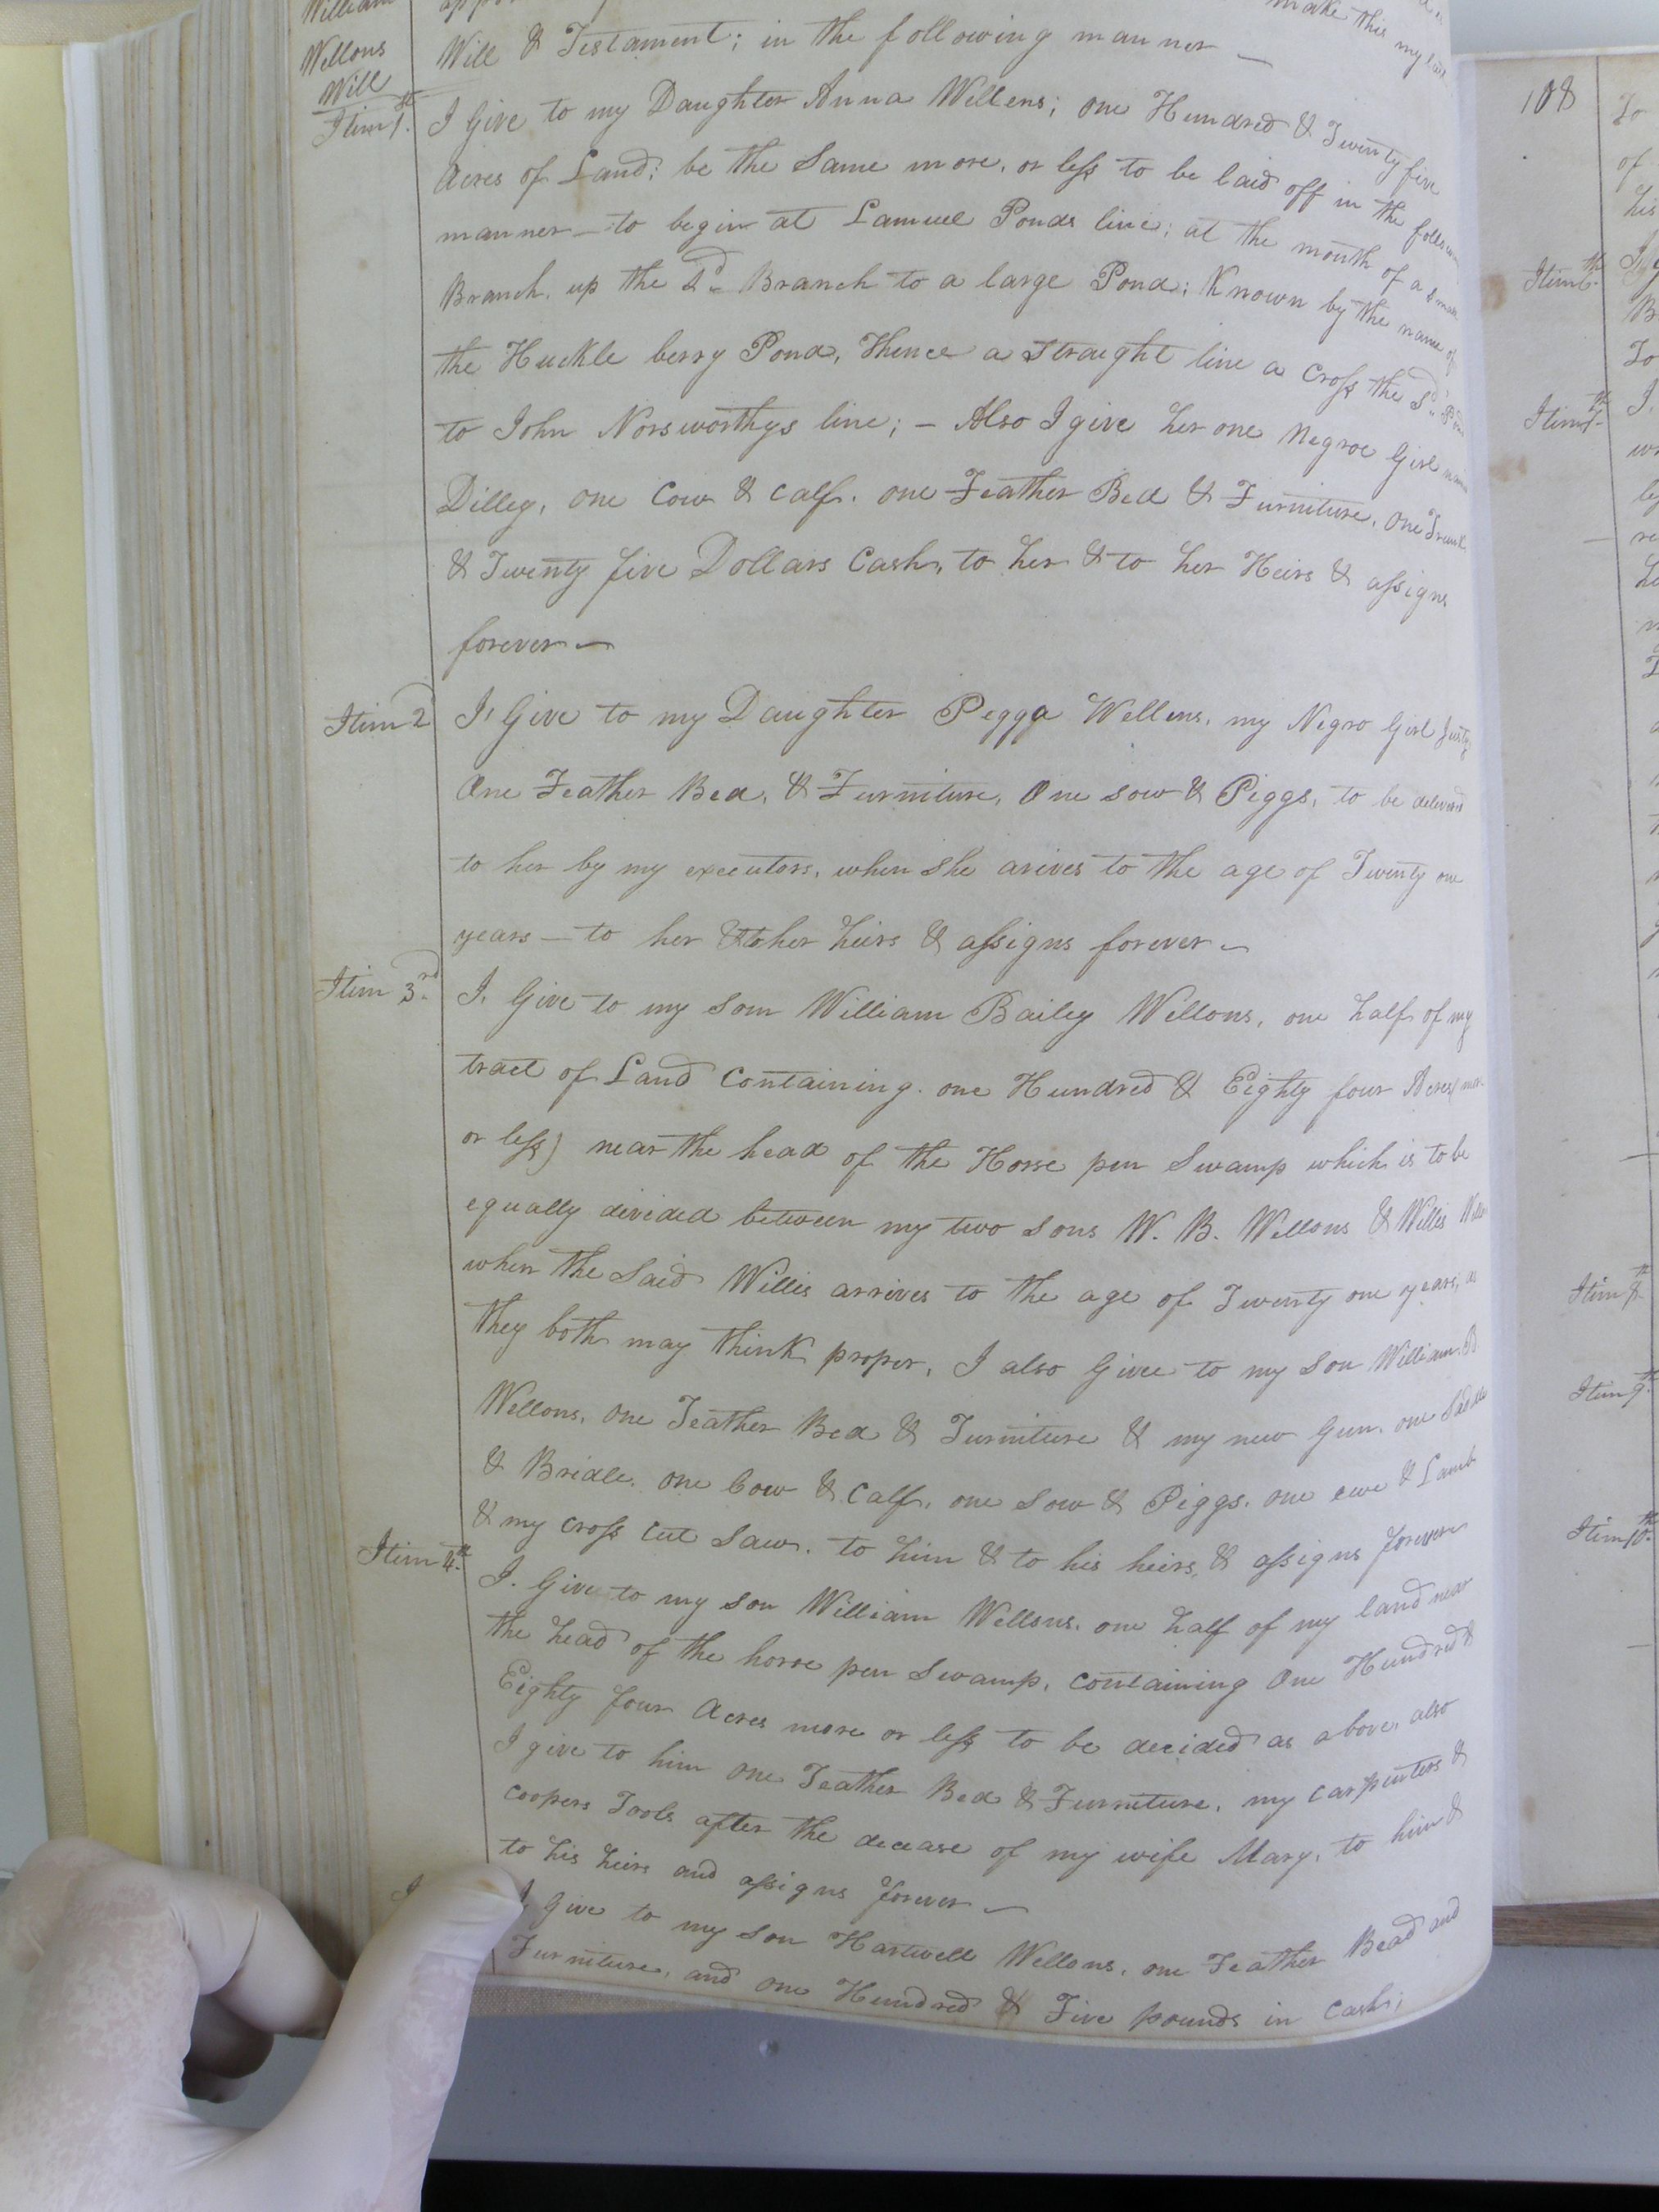 William
Wellons
Will
make this my last
Will & Testament; in the following manner —
Itim 1st. I Give to my Daughter Anna Wellens; one Hundred & Twenty five
Acres of Land; be the Same more, or less to be laid off in the
manner — to begin at Lamuel Ponds line; at the mouth of a Small
Branch, up the Sd. Branch to a large Pond; Known by the name of
the Huckle berry Pond, Thence a Straught line a Cross the Sd.
to John Norsworthys line; — Also I give her one Negroe Girl
Dilley, one Cow & calf. one Feather Bed & Furniture, one Trunk
& Twenty five Dollars Cash, to her & to her Heirs & assigns
forever —
Itim 2 I, Give to my Daughter Pegga Wellens, my Negro Girl
One Feather Bed, & Furniture, One sow & Piggs, to be
to her by my executors, when She arives to the age of Twenty one
years — to her & to her heirs & assigns forever —
Itim 3rd. I, Give to my Son William Bailey Wellons, one half of my
tract of Land Containing. one Hundred & Eighty four Acres (mor
or less) near the head of the Horse pen Swamp which is to be
equally divided between my two Sons W. B. Wellons & Willis
when the Said Willis arrives to the age of Twenty one years, as
they both may think proper, I also Give to my Son William B
Wellons, one Feather Bed & Furniture & my new Gun, one Saddle
& Bridle, one Cow & Calf, one Sow & Piggs, one ewe & Lamb
& my cross cut Saw. to him & to his heirs, & assigns forever
Itim 4th. I. Give to my Son William Wellons. one half of my land near
the head of the horse pen Swamp, Containing One Hundred &
Eighty four Acres more or less to be decided as above, also
I give to him one Feather Bed & Furniture, my carpenters &
coopers Tools after the decease of my wife Mary, to him &
to his heirs and assigns forever —
I Give to my Son Hartwell Wellons, one Feather Bead and
Furniture, and one Hundred & Five pounds in Cash;
108
To
of
his
Itim 6th.
B
To
Itim 7th.
I.
Itim 8th
Itim 9th.
Itim 10th.